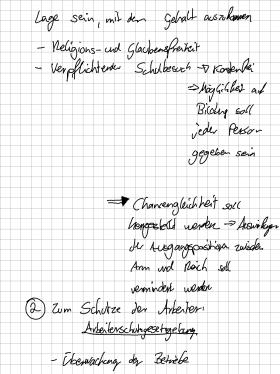 Lage sein, mit dem Gehalt auszukommen
- Religions- und Glaubensfreiheit
- Verpflichtender Schulbesuch → Kostenfrei
⇒ Möglichkeit auf
Bildung soll
jeder Person
gegeben sein
⇒ Chancengleichheit soll
hergestellt werden →
der Ausgangsposition zwischen
Arm und Reich soll
vermindert werden
② Zum Schutze der Arbeiter:
Arbeiterschutzgesetzgebung
- Überwachung der Betriebe